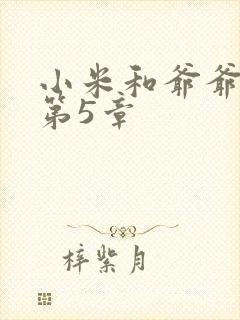 小米和爷爷
第5章
梓紫月